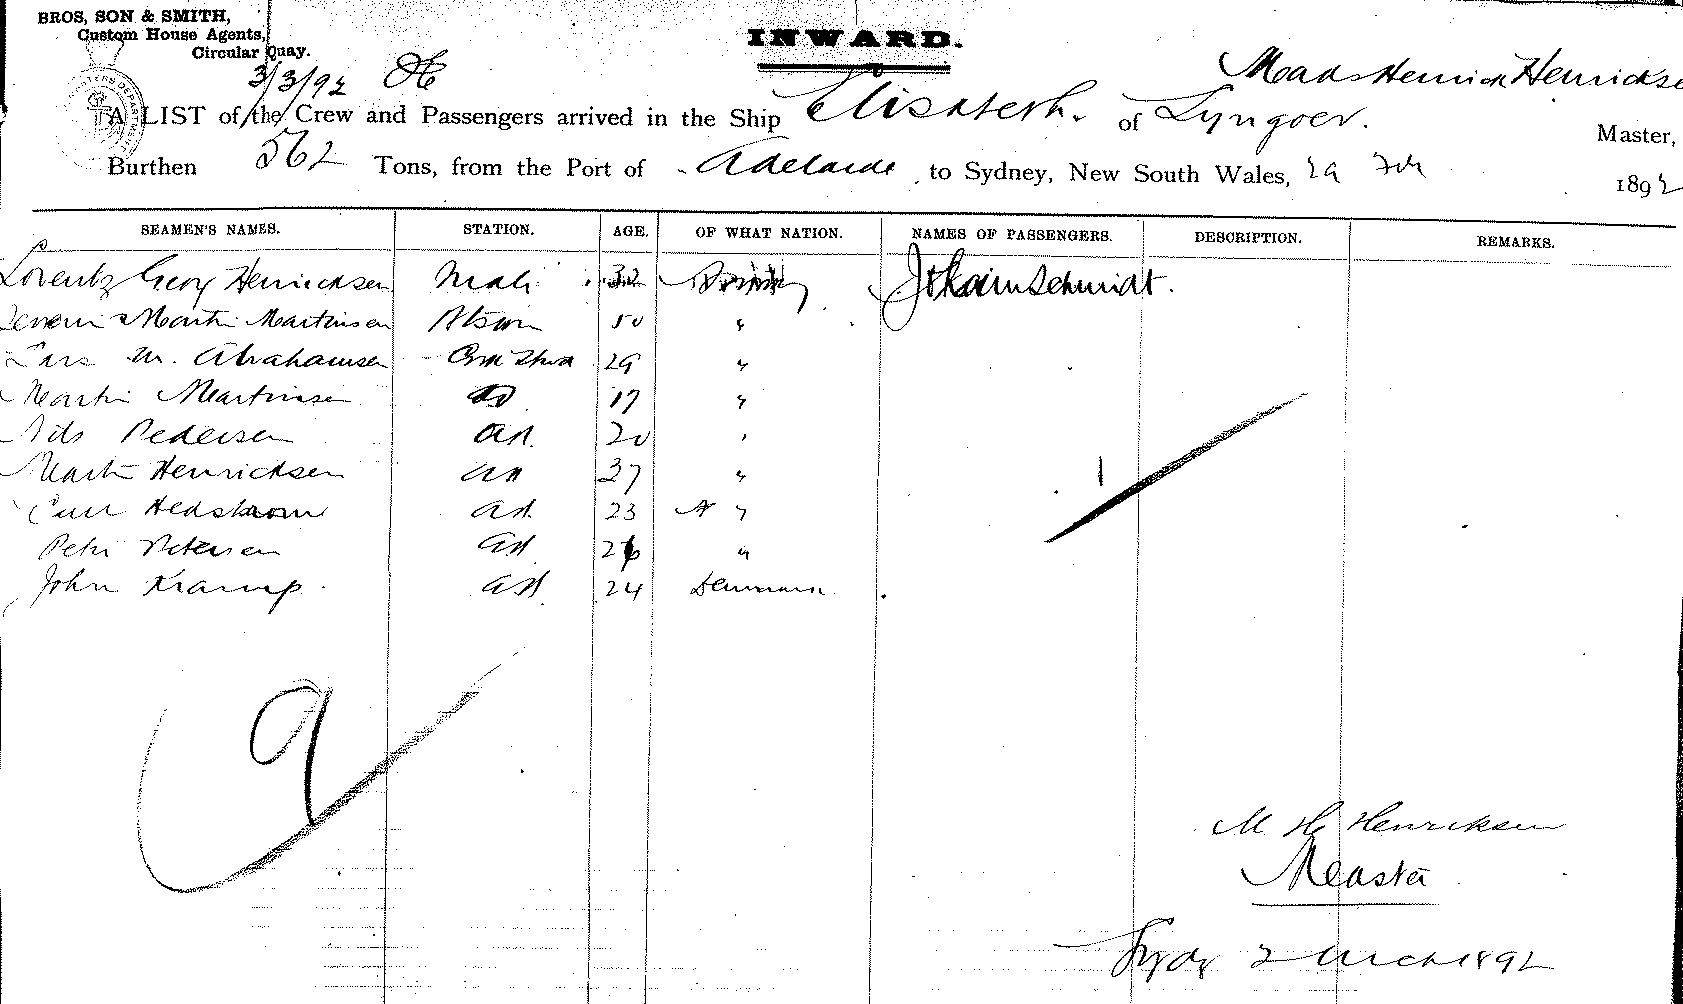 BROS, SON & SMITH,
Custom House Agents,
Circular Quay.
INWARD.
3/3/92
Mads Henrick Henricksen
A LIST of the Crew and Passengers arrived in the Ship Elisabeth. of Lyngoer. Master,
Burthen 562 Tons, from the Port of Adelaide to Sydney, New South Wales, 29 Feb 1892
SEAMEN'S NAMES. STATION. AGE. OF WHAT NATION. NAMES OF PASSENGERS. DESCRIPTION. REMARKS.
Lorentz Georg Henricksen Mate 32 Schmidt.
Martin Martinsen 50 "
Lars M. Abrahamsen 29 "
Martin Martinsen Do 17 "
Nils Pedersen 20 "
Martin Henricksen 37 "
Hedstrom 23 "
Peter Petersen 26 "
John Kramp. 24 Denmark
9
1
M H Henriksen
Master
2 March 1892